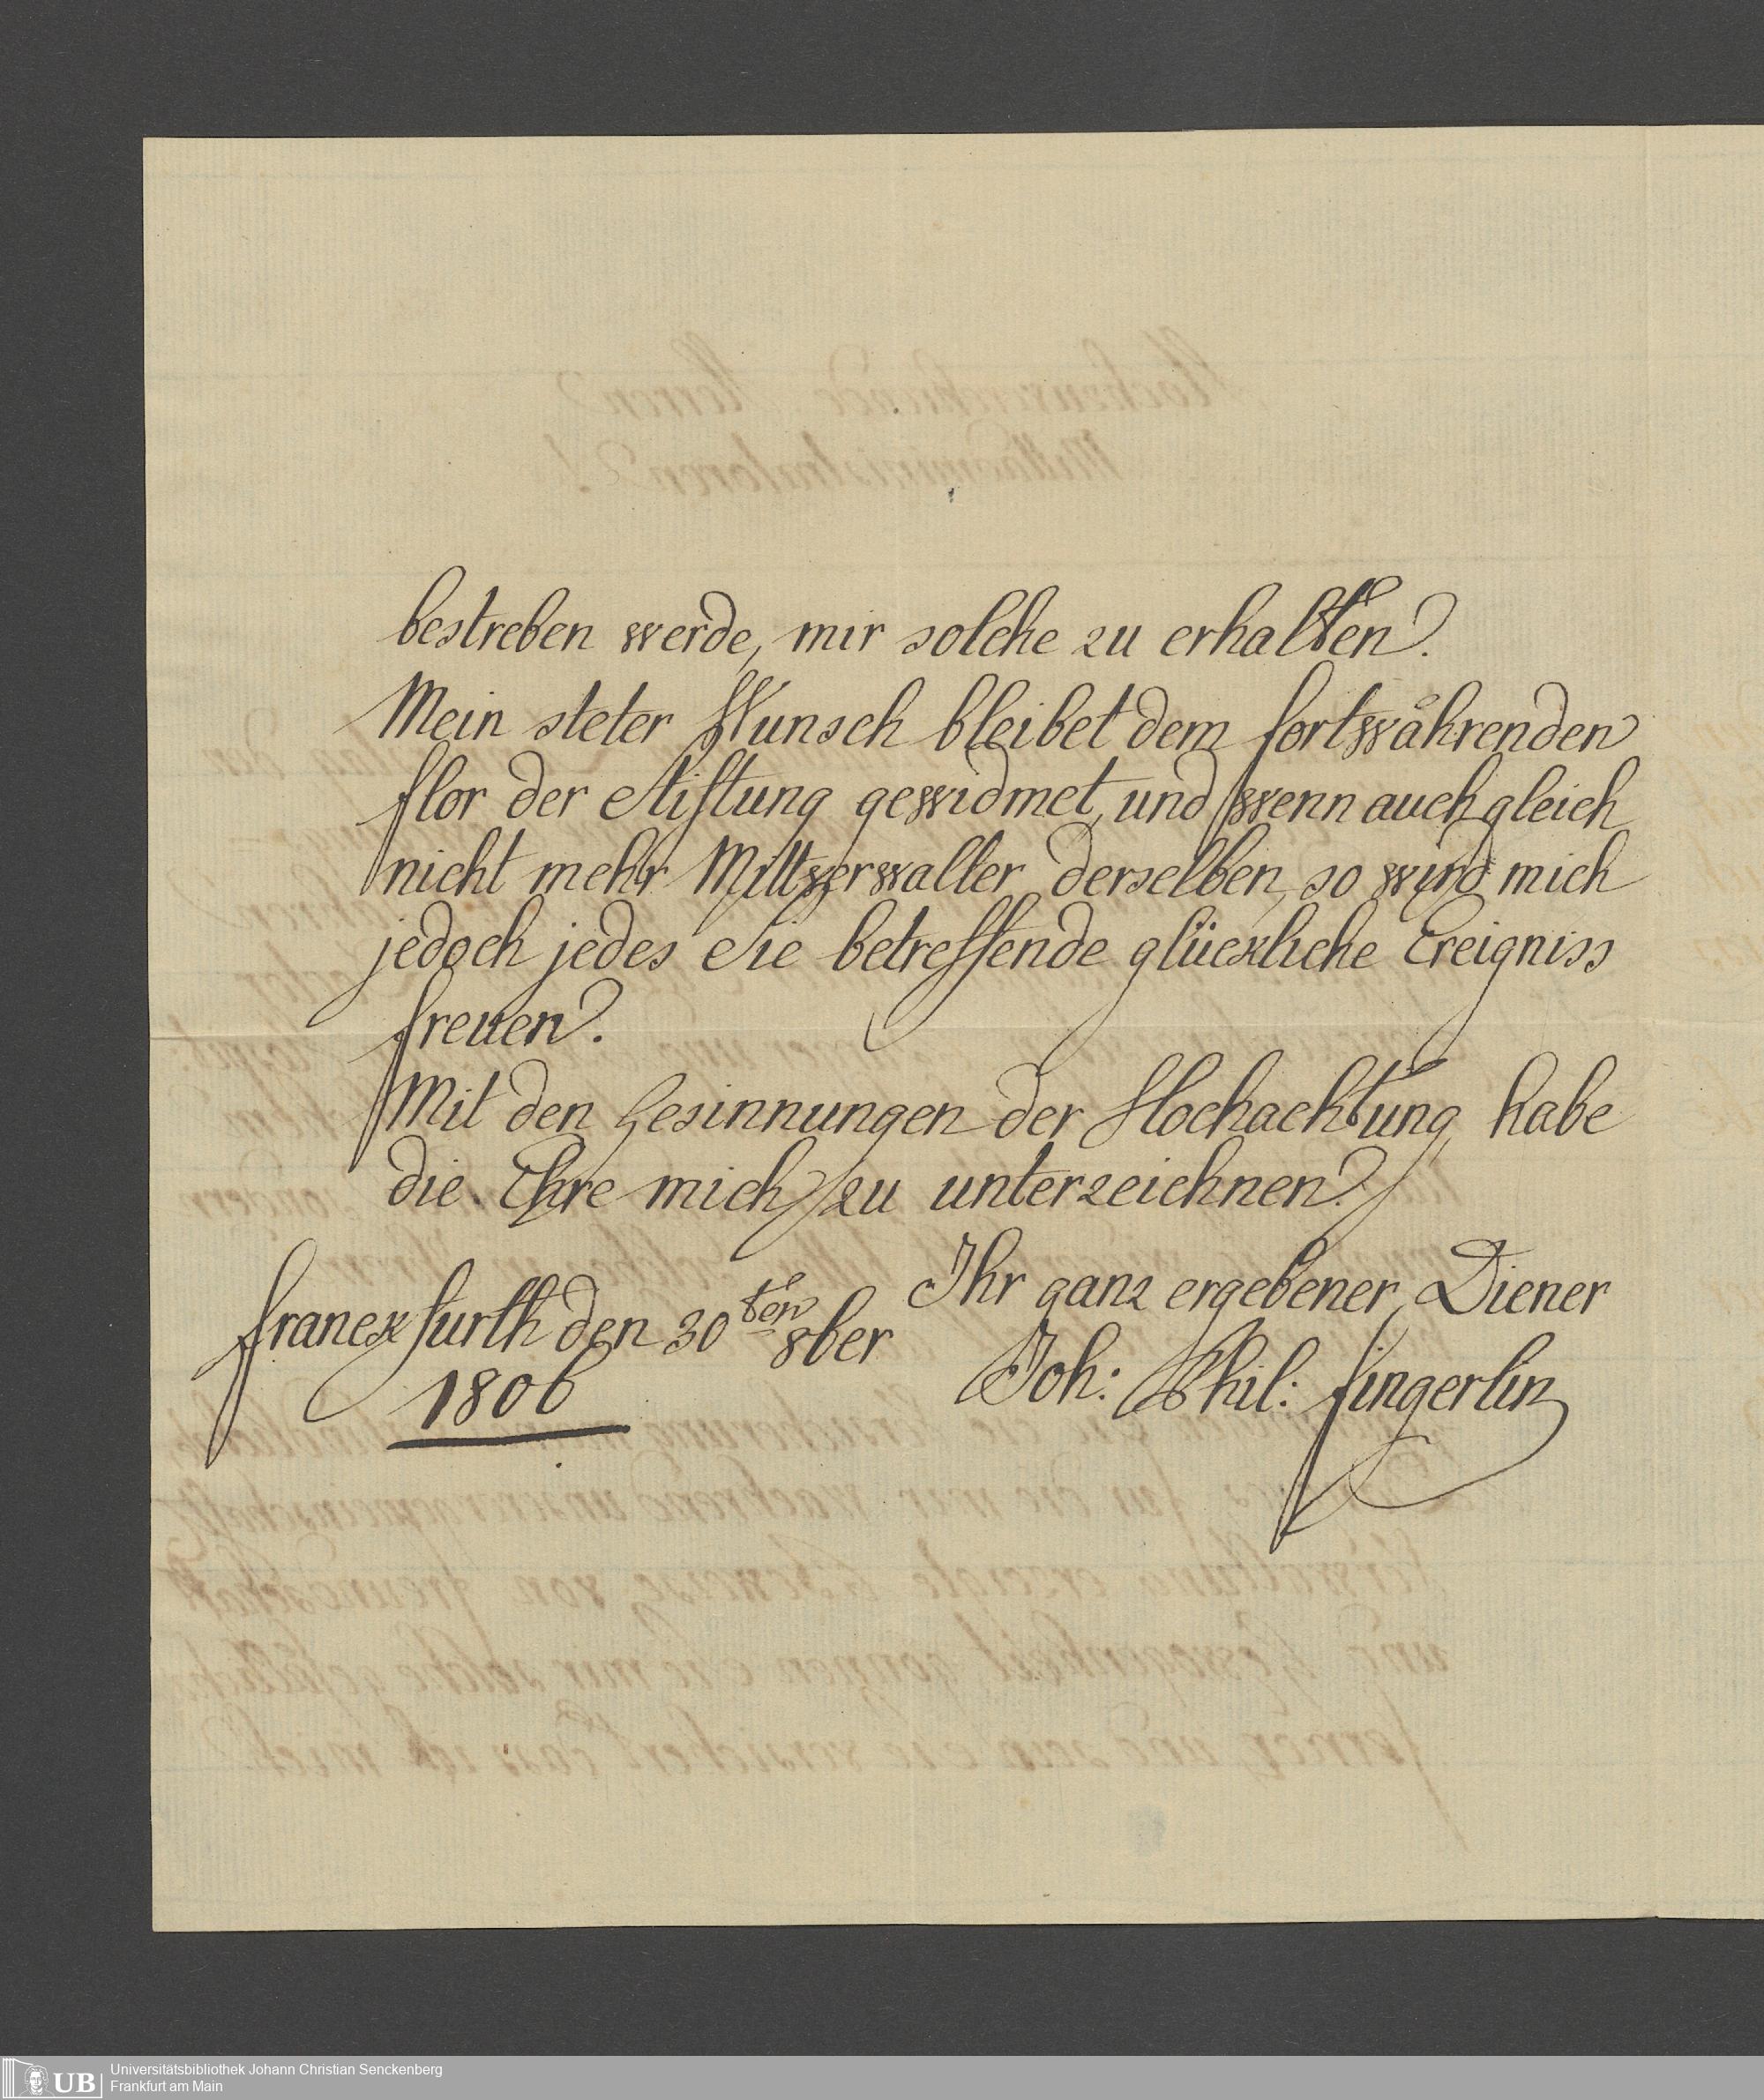 bestreben werde, mir solche zu erhalten.
Mein steter Wunsch bleibet dem fortwährenden
flor der Stiftung gewidmet, und wenn auch gleich
nicht mehr Mittverwalter derselben, so wird mich
jedoch jedes Sie betreffende glückliche Ereigniss
freuen.
Mit den Gesinnungen der Hochachtung habe
die Ehre mich zu unterzeichnen.
Ihr ganz ergebener Diener
franckfurth den 30ten 8ber
1806
Joh: Phil: fingerlin
UB
Universitätsbibliothek Johann Christian Senckenberg
Frankfurt am Main